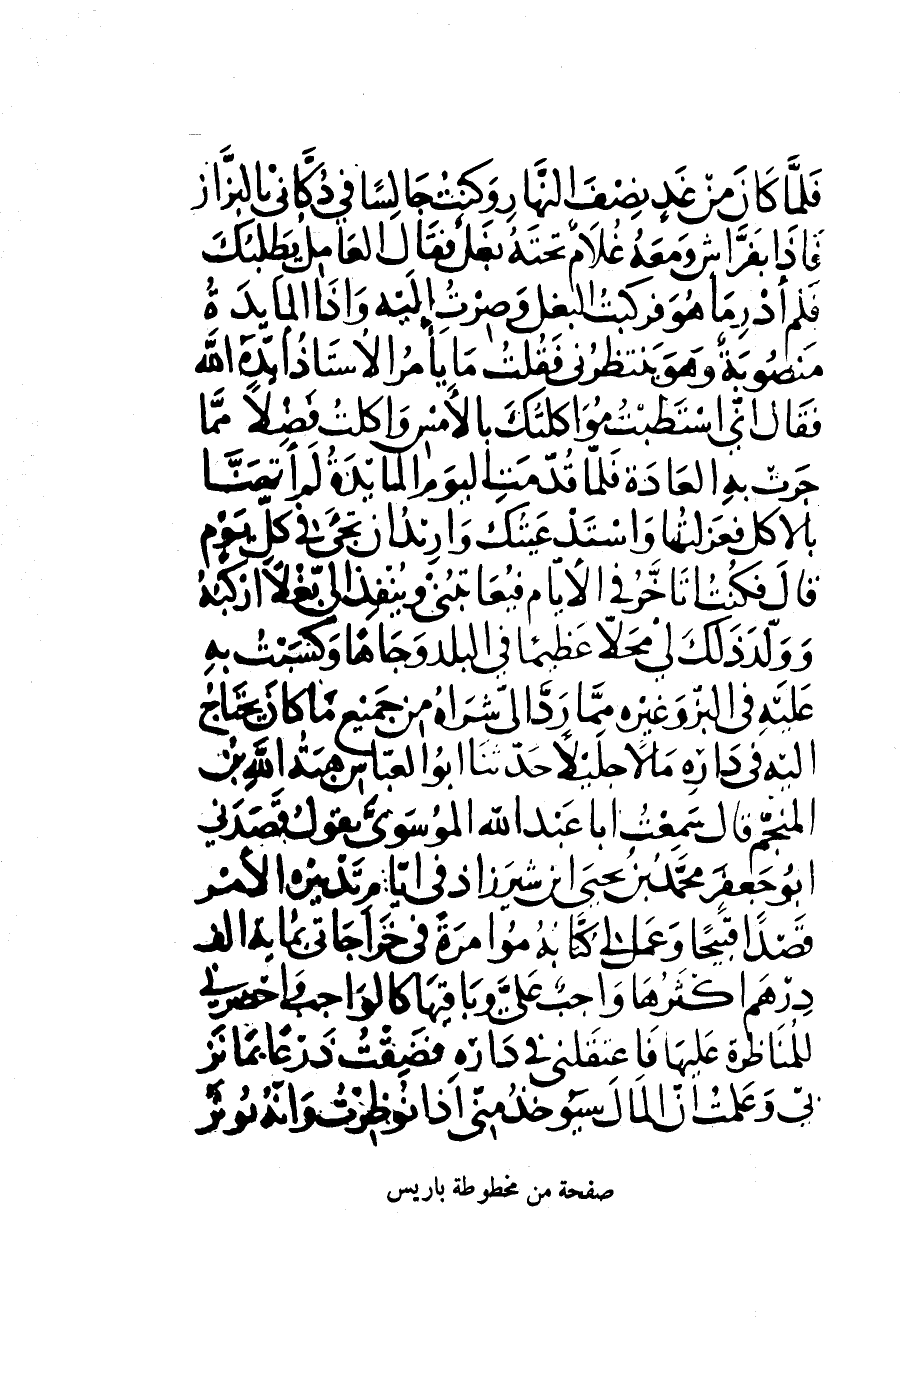 فَلَمَّا كَانَ مِنْ غَدٍ نِصْفَ النَّهَارِ وَكُنْتُ جَالِسًا فِي دُكَّانِي بِالبَزَّازِ
فَاِذَا بِفَرَّاشٍ وَمَعَهُ غُلَامٌ تَحْتَهُ بَغْلٌ فَقَالَ العَامِلُ يَطْلُبُكَ
فَلَم أَدْرِ مَا هُوَ فَركِبْتُ البَغلَ وَصِرْتُ إِلَيْهِ وَاِذَا المَايدَةُ
مَنصُوبَةٌ وَهوَ يَنتَظِرُنِي فَقُلتُ مَا يأمُرُ الأُسْتَاذُ اَيَّدَهُ اللَّه
فقَال اِنِّي اسْتَطَبْتُ مُوَاكَلَتَكَ بِالأَمْسِ وَاَكلتُ فَضْلاً مِمَّا
جَرَتْ بِهِ العَادَة فَلَمَّا قُدّمَتِ اليَومَ المَائِدَةُ لَم اَتَهَنَّا
بِالاكلِ فَعَزلتُهَا وَاسْتَدْعَيْتُكَ وَارِيْدُ ان تجِئَ فِي كلِّ يَوْم
قالَ فَكُنْتُ اتَاخَّرُ فِي الأيَّام فيُعَاتِبُنِي وَيُنْفِذُ اليَّ بَغْلاً اَرْكبُهُ
وَوَلَّدَ ذَلكَ لِي مَحَلاًّ عَظِيمًا فِي البَلدِ وَجَاهًا وَكسَبْتُ بِهِ
عَلَيْهِ فِي البَزِّ وَغيْرِهِ مِمَّا رَدَّ الىَّ شَرَاهُ مِن جَمِيْعِ مَا كَانَ يَحْتَاجُ
اليْهِ فِي دَارِهِ مَالاً جليْلاً حَدّثنَا ابوُ العَبَّاسِ هِبَةُ اللهِ بْنُ
المنَجِّم قال سَمِعْتُ ابَا عَبْد الله المُوْسَوِيَّ يقولُ قَصَدَنِي
ابُو جَعفَرَ مُحَمَّدُ بْنُ يَحيَى بن شيرَزاد فِي ايَّامِ تَدْبِيْرِهِ الأمْر
قَصْدًا قبيْحًا وَعَمِلَ لِي كُتَّابُهُ مُوَامَرَةً فِي خَرَاجَاتِي بمُايةِ الف
دِرْهَم اكثَرُهَا وَاجبٌ عَلَيَّ وبَاقيْهَا كالوَاجبِ وَاحْضَرنِي
لِلمُنَاظَرةِ عَليْهَا فَاعتقَلنِي فِي دَارِهِ فَضِقْتُ ذَرْعًا بمَا نَزَ
بِي وَعَلمتُ أنَّ المَالَ سَيُوخذُ مِنِّي اذا نُوظِرتُ وَانَّهُ يُوثِّرُ
صفحة من مخطوطة باريس